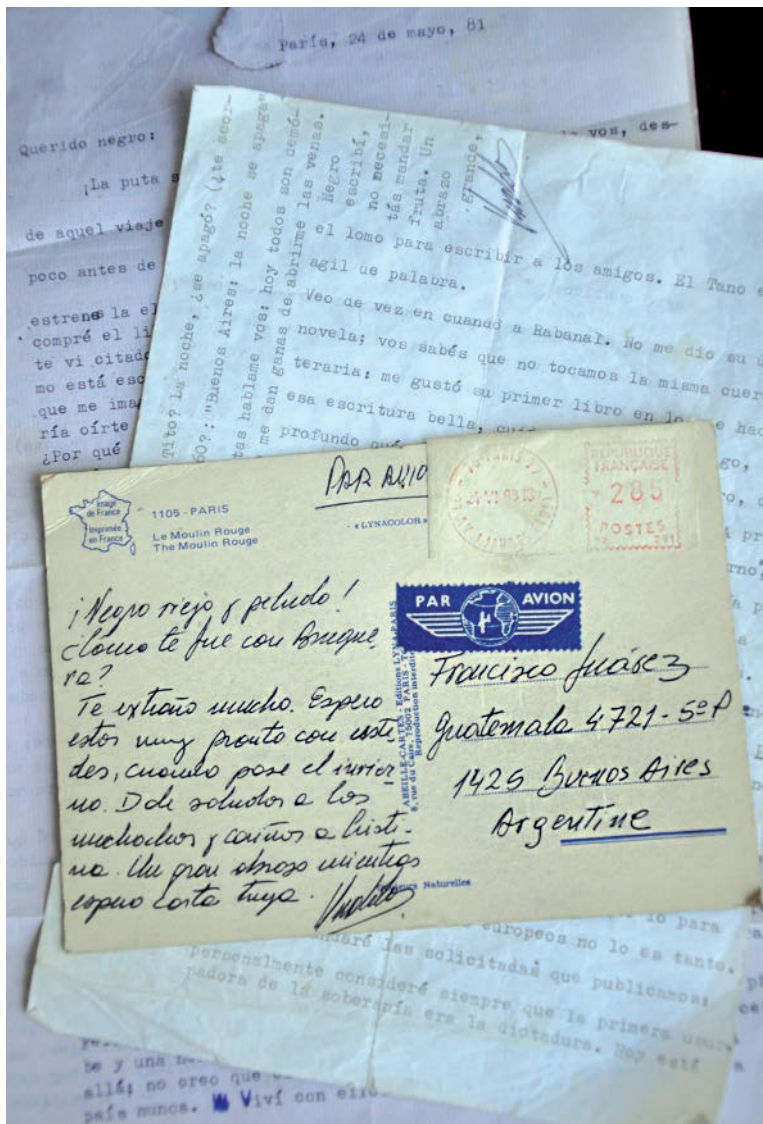 París, 24 de mayo, 81
Querido negro:
vos, des-
¡La puta
de aquel viaje
poco antes de
estrené la
compré el
te vi citado
mo está
que me
ría oírte
¿Por qué
Tito? La noche, ¿se apagó? (¿te acor-
"Buenos Aires: la noche se apaga"
hablame vos: hoy todos son demó-
me dan ganas de abrirme las venas.
Negro
escribí,
no necesi-
tás mandar
fruta. Un
abrazo
grande,
el lomo para escribir a los amigos. El Tano
agil de palabra.
Veo de vez en cuando a Rabanal. No me dio su
novela; vos sabés que no tocamos la misma
teraria: me gustó su primer libro en
esa escritura bella,
profundo
Image
de France
Imprimée
en France
1105 - PARIS
Le Moulin Rouge
The Moulin Rouge
PAR AVIO
- «LYNACOLOR»
REPUBLIQUE
FRANCAISE
285
POSTES
¡Negro viejo y peludo!
¿Cómo te fue con Brugue-
ra?
Te extraño mucho. Espero
estar muy pronto con uste-
des, cuando pase el invier-
no. Dale saludos a los
muchachos y cariños a Cristi-
na. Un gran abrazo mientras
espero carta tuya.
PAR AVION
ABEILLE-CARTES - Editions LYNA-PARIS
8, rue du Caire, 75002 PARIS
Reproduction interdite
Francisco Juárez
Guatemala 4721 - 5º P
1425 Buenos Aires
Argentine
Naturelles
lo para
europeos no lo es tanto.
las solicitadas que publicamos:
personalmente consideré siempre que la primera usur-
padora de la soberanía era la dictadura. Hoy está
y una
allá; no creo que
país nunca. Viví con